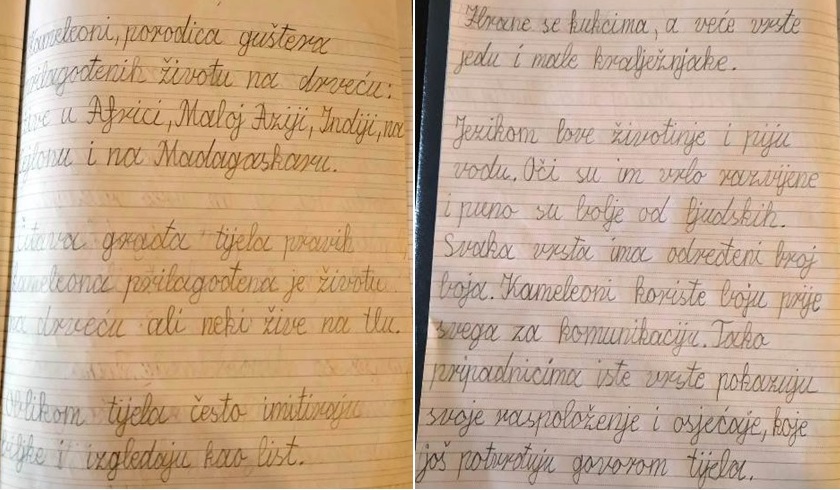 Kameleoni, porodica guštera
prilagođenih životu na drveću:
žive u Africi, Maloj Aziji, Indiji, na
Cejlonu i na Madagaskaru.
Čitava građa tijela pravih
kameleona prilagođena je životu
na drveću ali neki žive na tlu.
Oblikom tijela često imitiraju
biljke i izgledaju kao list.
Hrane se kukcima, a veće vrste
jedu i male kralježnjake.
Jezikom love životinje i piju
vodu. Oči su im vrlo razvijene
i puno su bolje od ljudskih.
Svaka vrsta ima određeni broj
boja. Kameleoni koriste boju prije
svega za komunikaciju. Tako
pripadnicima iste vrste pokazuju
svoje raspoloženje i osjećaje, koje
još potvrđuju govorom tijela.